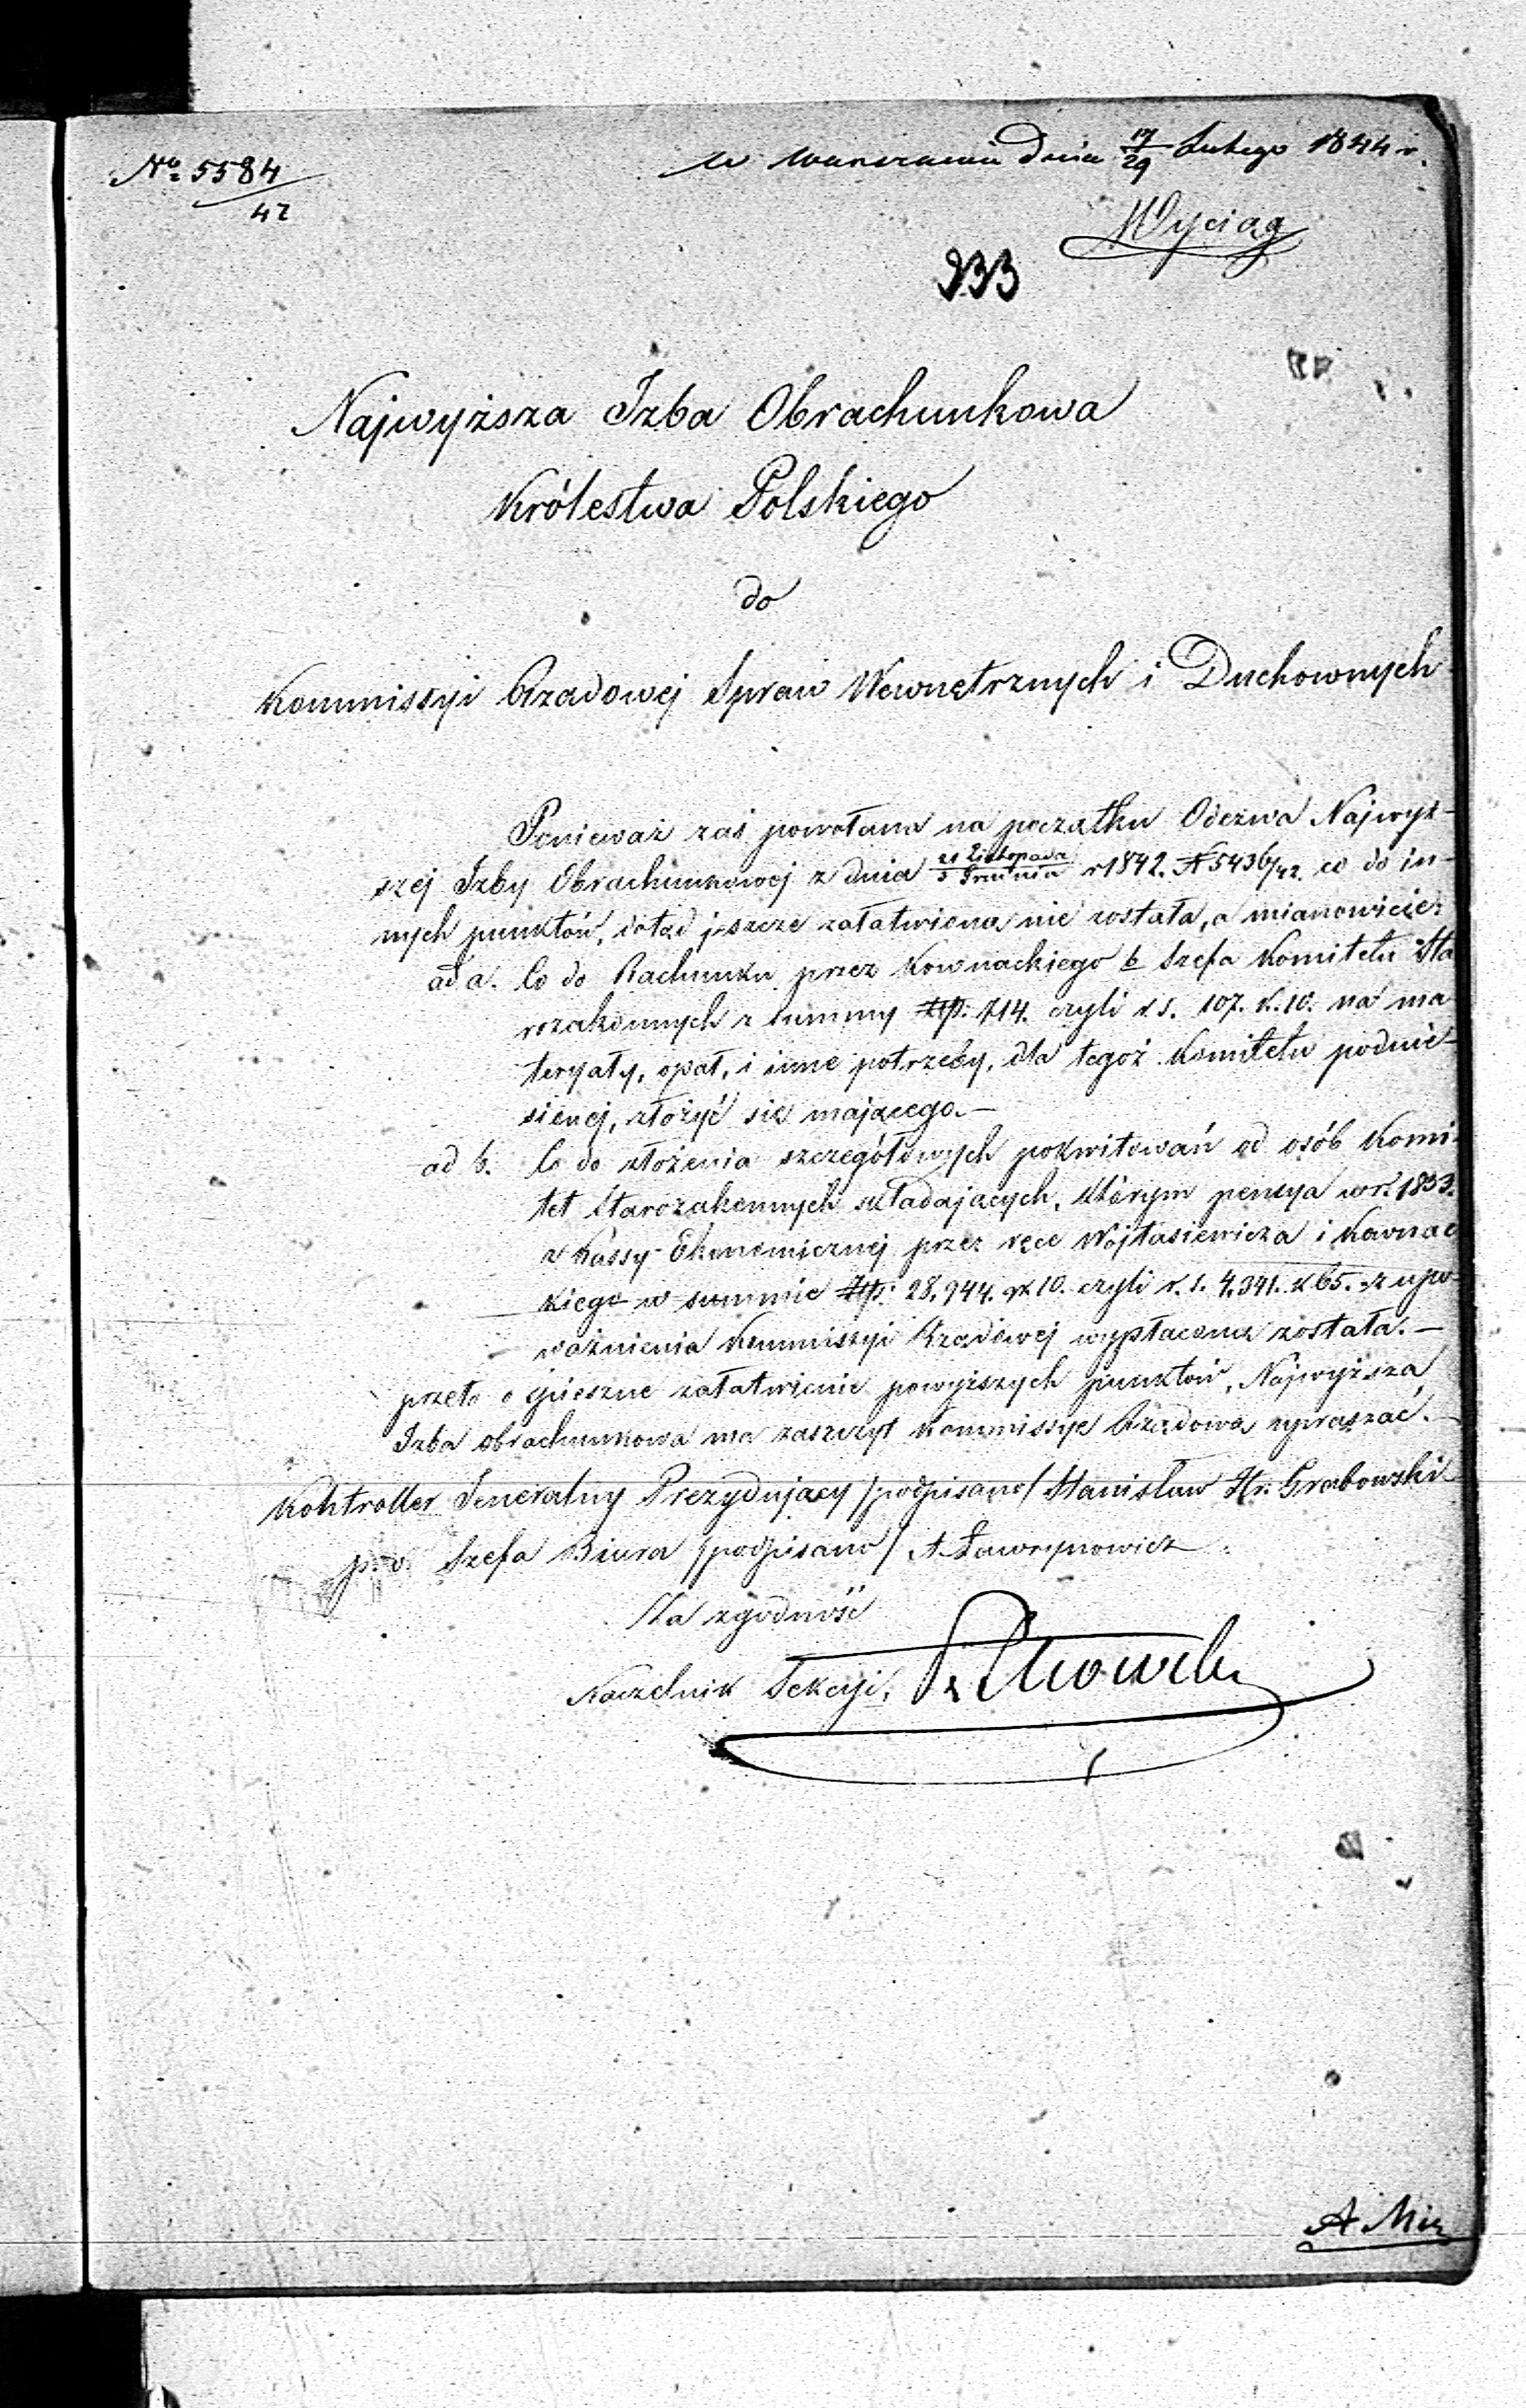 No 5584/42
w Warszawie dnia 17/29 Lutego 1844 r.
Wyciąg
933
Najwyższa Izba Obrachunkowa
Królestwa Polskiego
do
Kommissyi Rządowej Spraw Wewnętrznych i Duchownych
Ponieważ zaś powołana na początku Odezwa Najwyż-
szej Izby Obrachunkowej z dnia 21 Listopada/3 Grudnia r 1842. N 5436/42. co do in-
nych punktów, dotąd jeszcze załatwioną nie została, a mianowicie:
ad a. Co do Rachunku przez Kownackiego b Szefa Komitetu Sta
rozakonnych z summy Złp. 714. czyli r.s. 107. k. 10. na ma
teryały, opał, i inne potrzeby, dla tegoż Komitetu podnie-
sionej, złożyć się mającego.—
ad b. Co do złożenia szczegółowych pokwitowań od osób Komi-
tet Starozakonnych składających, którym pensya w r. 1833.
z Kassy Ekonomicznej przez ręce Wojtasiewicza i Kownac
kiego w summie Złp. 28,944. gr 10. czyli r. s. 4,341. k 65. z upo-
ważnienia Kommissyi Rządowej wypłaconą została.—
przeto o spieszne załatwienie powyższych punktów, Najwyższa
Izba obrachunkowa ma zaszczyt Kommissyę Rządową upraszać.—
Kontroller Jeneralny Prezydujący /podpisano/ Stanisław Hr. Grabowski
p. o. Szefa Biura /podpisano/ A. Ławrynowicz.
Za zgodność
Naczelnik Sekcyi,
A Mir